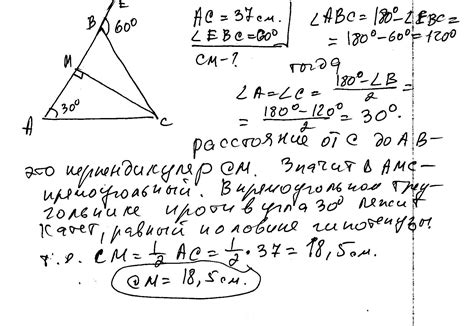 E
B 60°
M
A 30° C
AC = 37см.
∠EBC=60°
CM-?
∠ABC=180°-∠EBC=
=180°-60°=120°
тогда
∠A=∠C= 180°-∠B / 2 =
= 180°-120° / 2 = 30°.
расстояние от C до AB-
это перпендикуляр CM. Значит △AMC-
прямоугольный. В прямоугольном треу-
гольнике против угла 30° лежит
катет, равный половине гипотенузы
т.е. CM = 1/2 AC = 1/2 · 37 = 18,5см.
CM = 18,5см.